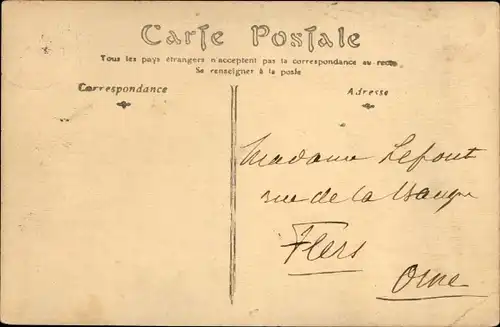 Carte Postale
Tous les pays étrangers n'acceptent pas la correspondance au recto
Se renseigner à la poste
Correspondance
Adresse
Madame Lefout
rue de la Banque
Flers
Orne